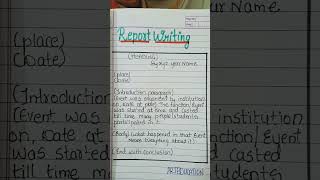 Report Writing
(Heading)
By:xyz your Name
(place)
(Date)
(Introduction paragraph)
(Event was organized by institution/
on, date at place) The function/Event
was started at time and casted
till time many people/students
participated in it.
(Body) (what happened in that Event
Means everything about it)
(End with conclusion)
ARTDUCATION
(place)
(Date)
(Introduction
(Event was
on, date
was started
till time
institution
function/Event
casted
students